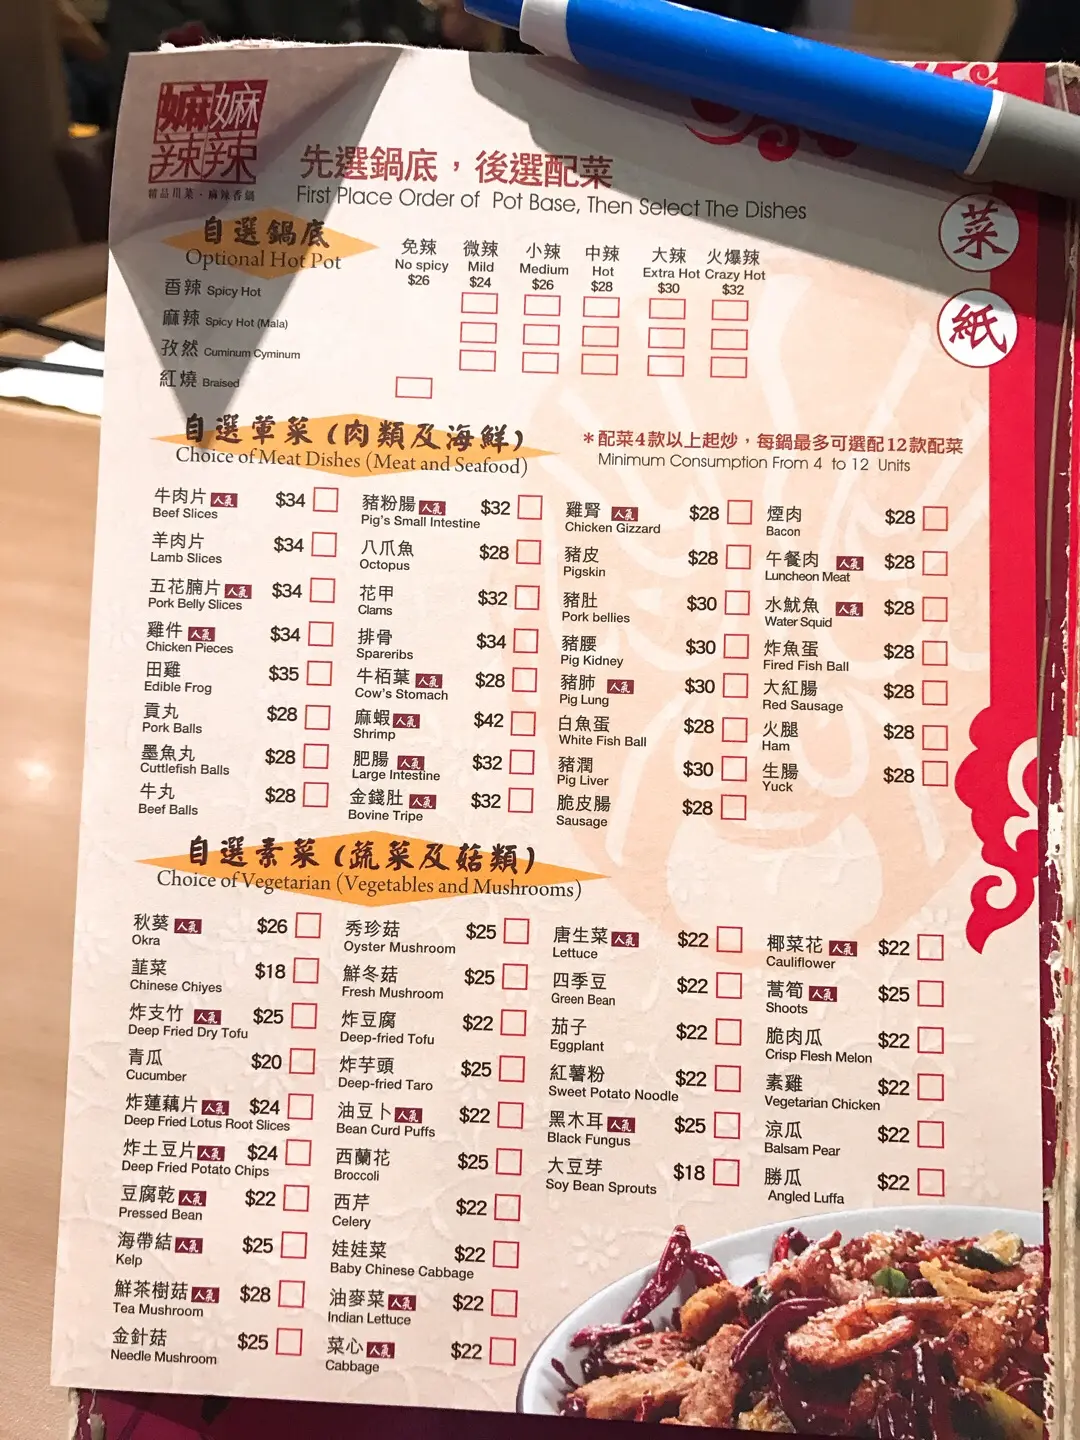 嫲嫲
辣辣
精品川菜·麻辣香鍋
先選鍋底，後選配菜
First Place Order of Pot Base, Then Select The Dishes
菜
紙
自選鍋底
Optional Hot Pot
免辣 微辣 小辣 中辣 大辣 火爆辣
No spicy Mild Medium Hot Extra Hot Crazy Hot
$26 $24 $26 $28 $30 $32
香辣 Spicy Hot
麻辣 Spicy Hot (Mala)
孜然 Cuminum Cyminum
紅燒 Braised
自選葷菜（肉類及海鮮）
Choice of Meat Dishes (Meat and Seafood)
＊配菜4款以上起炒，每鍋最多可選配12款配菜
Minimum Consumption From 4 to 12 Units
牛肉片 人氣 $34
Beef Slices
羊肉片 $34
Lamb Slices
五花腩片 人氣 $34
Pork Belly Slices
雞件 人氣 $34
Chicken Pieces
田雞 $35
Edible Frog
貢丸 $28
Pork Balls
墨魚丸 $28
Cuttlefish Balls
牛丸 $28
Beef Balls
豬粉腸 人氣 $32
Pig's Small Intestine
八爪魚 $28
Octopus
花甲 $32
Clams
排骨 $34
Spareribs
牛栢葉 人氣 $28
Cow's Stomach
麻蝦 人氣 $42
Shrimp
肥腸 人氣 $32
Large Intestine
金錢肚 人氣 $32
Bovine Tripe
雞腎 人氣 $28
Chicken Gizzard
豬皮 $28
Pigskin
豬肚 $30
Pork bellies
豬腰 $30
Pig Kidney
豬肺 人氣 $30
Pig Lung
白魚蛋 $28
White Fish Ball
豬潤 $30
Pig Liver
脆皮腸 $28
Sausage
煙肉 $28
Bacon
午餐肉 人氣 $28
Luncheon Meat
水魷魚 人氣 $28
Water Squid
炸魚蛋 $28
Fired Fish Ball
大紅腸 $28
Red Sausage
火腿 $28
Ham
生腸 $28
Yuck
自選素菜（蔬菜及菇類）
Choice of Vegetarian (Vegetables and Mushrooms)
秋葵 人氣 $26
Okra
韮菜 $18
Chinese Chiyes
炸支竹 人氣 $25
Deep Fried Dry Tofu
青瓜 $20
Cucumber
炸蓮藕片 人氣 $24
Deep Fried Lotus Root Slices
炸土豆片 人氣 $24
Deep Fried Potato Chips
豆腐乾 人氣 $22
Pressed Bean
海帶結 人氣 $25
Kelp
鮮茶樹菇 人氣 $28
Tea Mushroom
金針菇 $25
Needle Mushroom
秀珍菇 $25
Oyster Mushroom
鮮冬菇 $25
Fresh Mushroom
炸豆腐 $22
Deep-fried Tofu
炸芋頭 $25
Deep-fried Taro
油豆卜 人氣 $22
Bean Curd Puffs
西蘭花 $25
Broccoli
西芹 $22
Celery
娃娃菜 $22
Baby Chinese Cabbage
油麥菜 人氣 $22
Indian Lettuce
菜心 人氣 $22
Cabbage
唐生菜 人氣 $22
Lettuce
四季豆 $22
Green Bean
茄子 $22
Eggplant
紅薯粉 $22
Sweet Potato Noodle
黑木耳 人氣 $25
Black Fungus
大豆芽 $18
Soy Bean Sprouts
椰菜花 人氣 $22
Cauliflower
蒿筍 人氣 $25
Shoots
脆肉瓜 $22
Crisp Flesh Melon
素雞 $22
Vegetarian Chicken
涼瓜 $22
Balsam Pear
勝瓜 $22
Angled Luffa